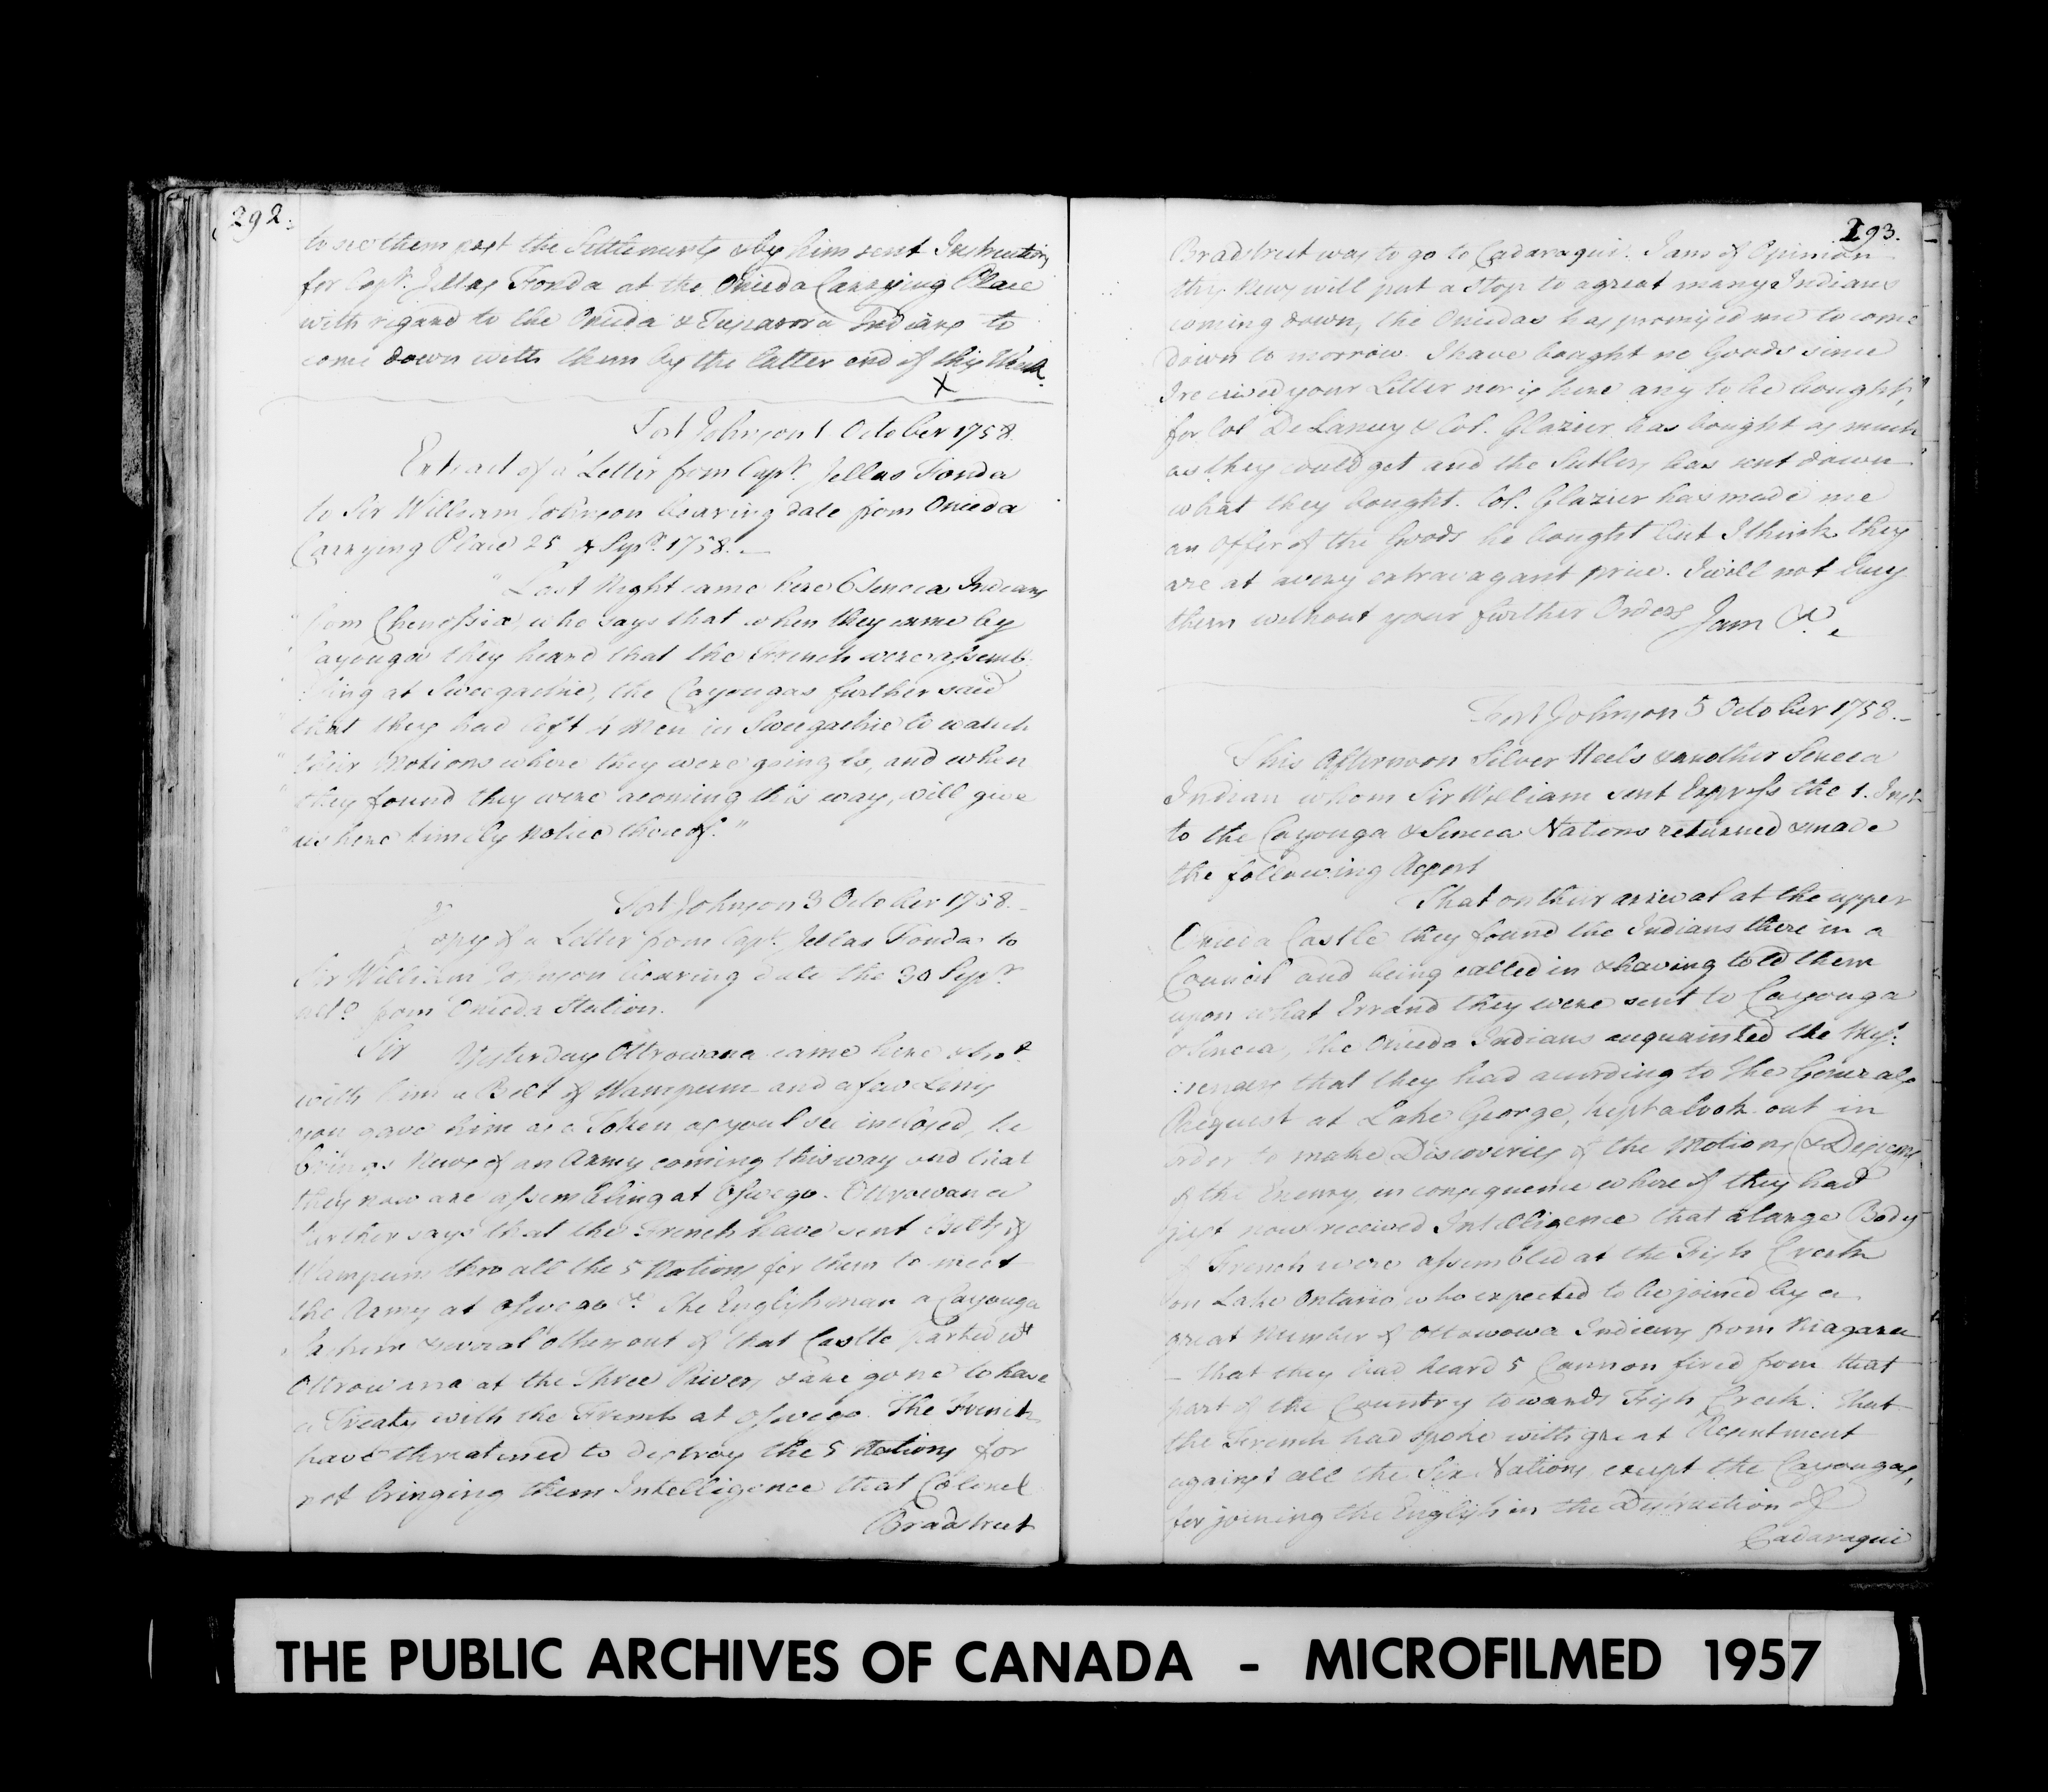 292.
to see them past the Settlements & by him sent Instructions
for Capt. Jellas Fonda at the Onieda Carrying Place
with regard to the Onieda & Tuscarora Indians to
come down with them by the latter end of this Week.
X
Fort Johnson 1 October 1758.
Extract of a Letter from Capt. Jellas Fonda
to Sir William Johnson bearing date from Onieda
Carrying Place 25 Sepr. 1758.
"Last Night came here 6 Seneca Indians
from Chenossia, who says that when they came by
Cayouga they heard that the French were assemb
ling at Sweegachie, the Cayougas further said
that they had left 4 Men in Sweegachie to watch
their Motions where they were going to, and when
they found they were acoming this way, will give
us here timely Notice thereof."
Fort Johnson 3 October 1758.
Copy of a Letter from Capt. Jellas Fonda to
Sir William Johnson bearing date the 30 Sepr.
ulto. from Onieda Station.
Sir Yesterday Ottrowana came here & brot.
with him a Belt of Wampum and a few
you gave him as a Token, as youl see inclosed, he
brings News of an Army coming this way and that
they now are assembling at Oswego. Ottrowana
further says that the French have sent Belts of
Wampum thro all the 5 Nations for them to meet
the Army at Oswego &c. The Englishman a Cayouga
Sachem & several others out of that Castle parted wt.
Ottrowana at the Three Rivers & are gone to have
a Treaty with the French at Oswego. The French
have threatened to destroy the 5 Nations for
not bringing them Intelligence that Colonel
Bradstreet
293.
Bradstreet was to go to Cadaraqui. I am of Opinion
this News will put a stop to a great many Indians
coming down, the Oniedas has promised me to come
down to morrow. I have bought no Goods since
I received your Letter nor is here any to be bought,
for Col. De Lancey & Col. Glazier has bought as much
as they could get and the Sutlers has sent down
what they bought. Col. Glazier has made me
an Offer of the Goods he bought but I think they
are at a very extravagant price. I will not buy
them without your further Orders I am &c.
Fort Johnson 5 October 1758.
This Afternoon Silver Heels & another Seneca
Indian whom Sir William sent Express the 1. Inst.
to the Cayouga & Seneca Nations returned & made
the following Report
That on their arrival at the upper
Onieda Castle they found the Indians there in a
Council and being called in & having told them
upon what Errand they were sent to Cayouga
& Seneca, the Onieda Indians acquainted the Mes:
:sengers that they had acording to the Generals
Request at Lake George, kept a look out in
order to make Discoveries of the Motions & Designs
of the Enemy, in consequence whereof they had
just now received Intelligence that a large Body
of French were assembled at the Fish Creek
on Lake Ontario, who expected to be joined by a
great Number of Ottowowa Indians from Niagara
- that they had heard 5 Cannon fired from that
part of the Country towards Fish Creek. That
the French had spoke with great Resentment
against all the Six Nations except the Cayougas,
for joining the English in the Distruction of
Cadaraqui
THE PUBLIC ARCHIVES OF CANADA - MICROFILMED 1957